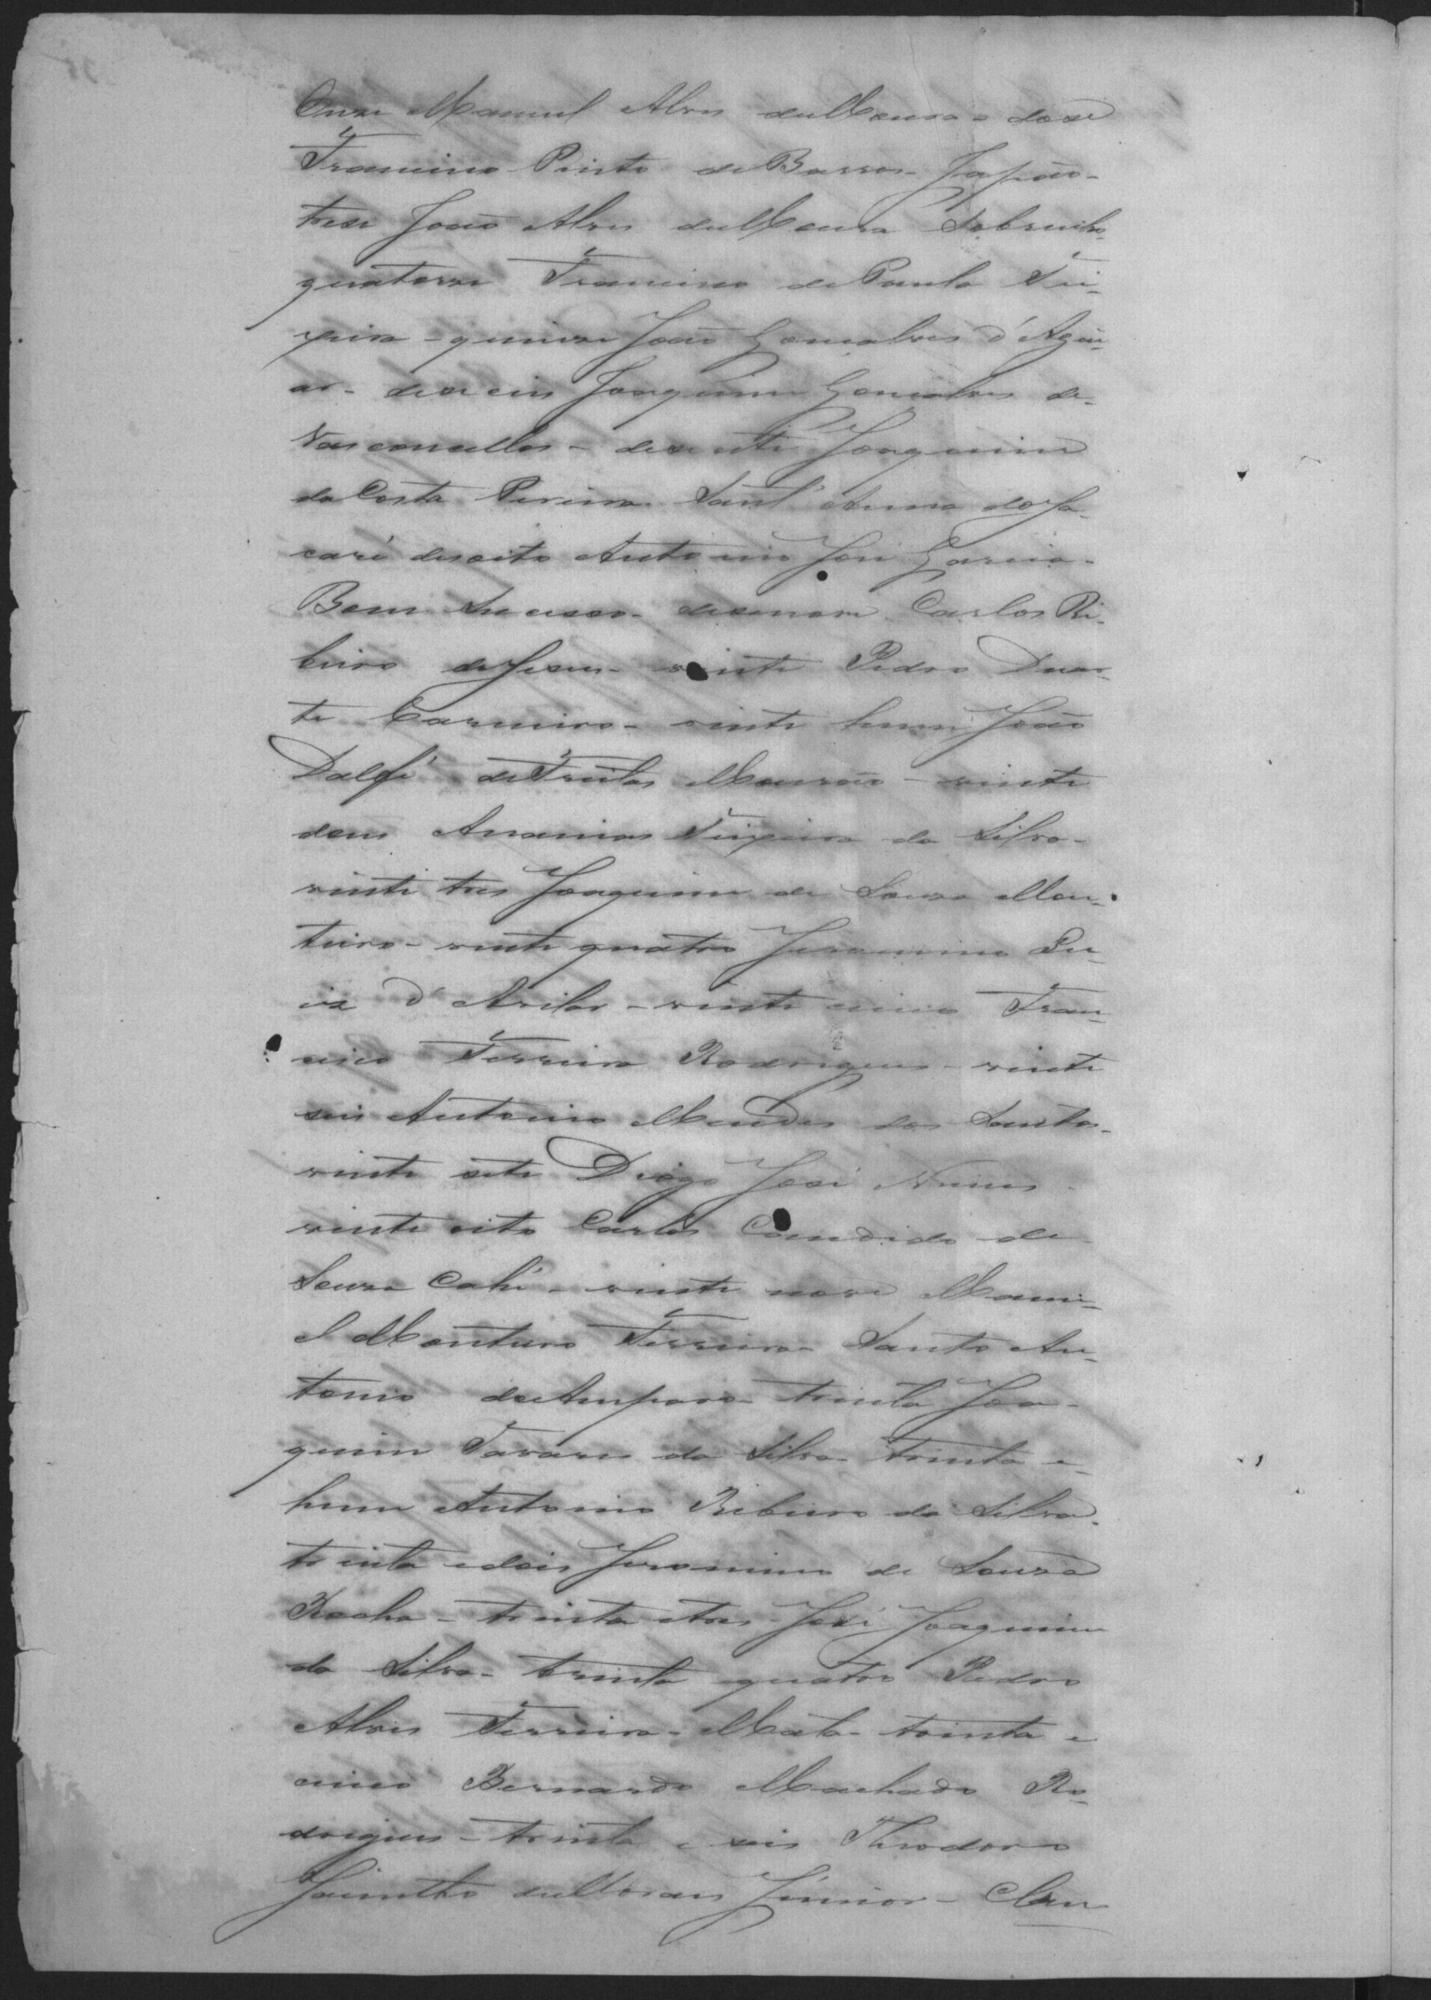 Onze Manoel Alves de Moura - doze
Francisco Pinto de Barros - Japão -
treze João Alves de Moura Sobrinho -
quatorze Francisco de Paula Tei-
xeira - quinze João Gonçalves d'Agui-
ar - deseseis Joaquim Gonçalves de
Vasconcellos - desesete Joaquim
da Costa Pereira Sant'Anna do Ja-
caré desoito Antonio José Garcia -
Bom Successo - desenove Carlos Ri-
beiro de Jesus - vinte Pedro Duar-
te Carneiro - vinte hum João
de Freitas Mourão - vinte
dous Ananias Teixeira da Silva -
vinte tres Joaquim de Souza Mon-
teiro - vinte quatro Jeronimo
d'Avila - vinte cinco Fran-
cisco Ferreira Rodrigues - vinte
seis Antonio Mendes dos Santos -
vinte sete Diogo José Nunes
vinte oito Carlos Candido de
Souza - vinte nove Mano-
el Monteiro Ferreira - Santo An-
tonio do Amparo - trinta Joa-
quim Tavares da Silva - trinta e
hum Antonio Ribeiro da Silva -
trinta e dois Jeronimo de Souza
Rocha - trinta e tres José Joaquim
da Silva - trinta quatro Pedro
Alves Ferreira - Matta - trinta e
cinco Bernardo Machado Ro-
drigues - trinta e seis Theodoro
Jacintho de Moraes Junior - Clau